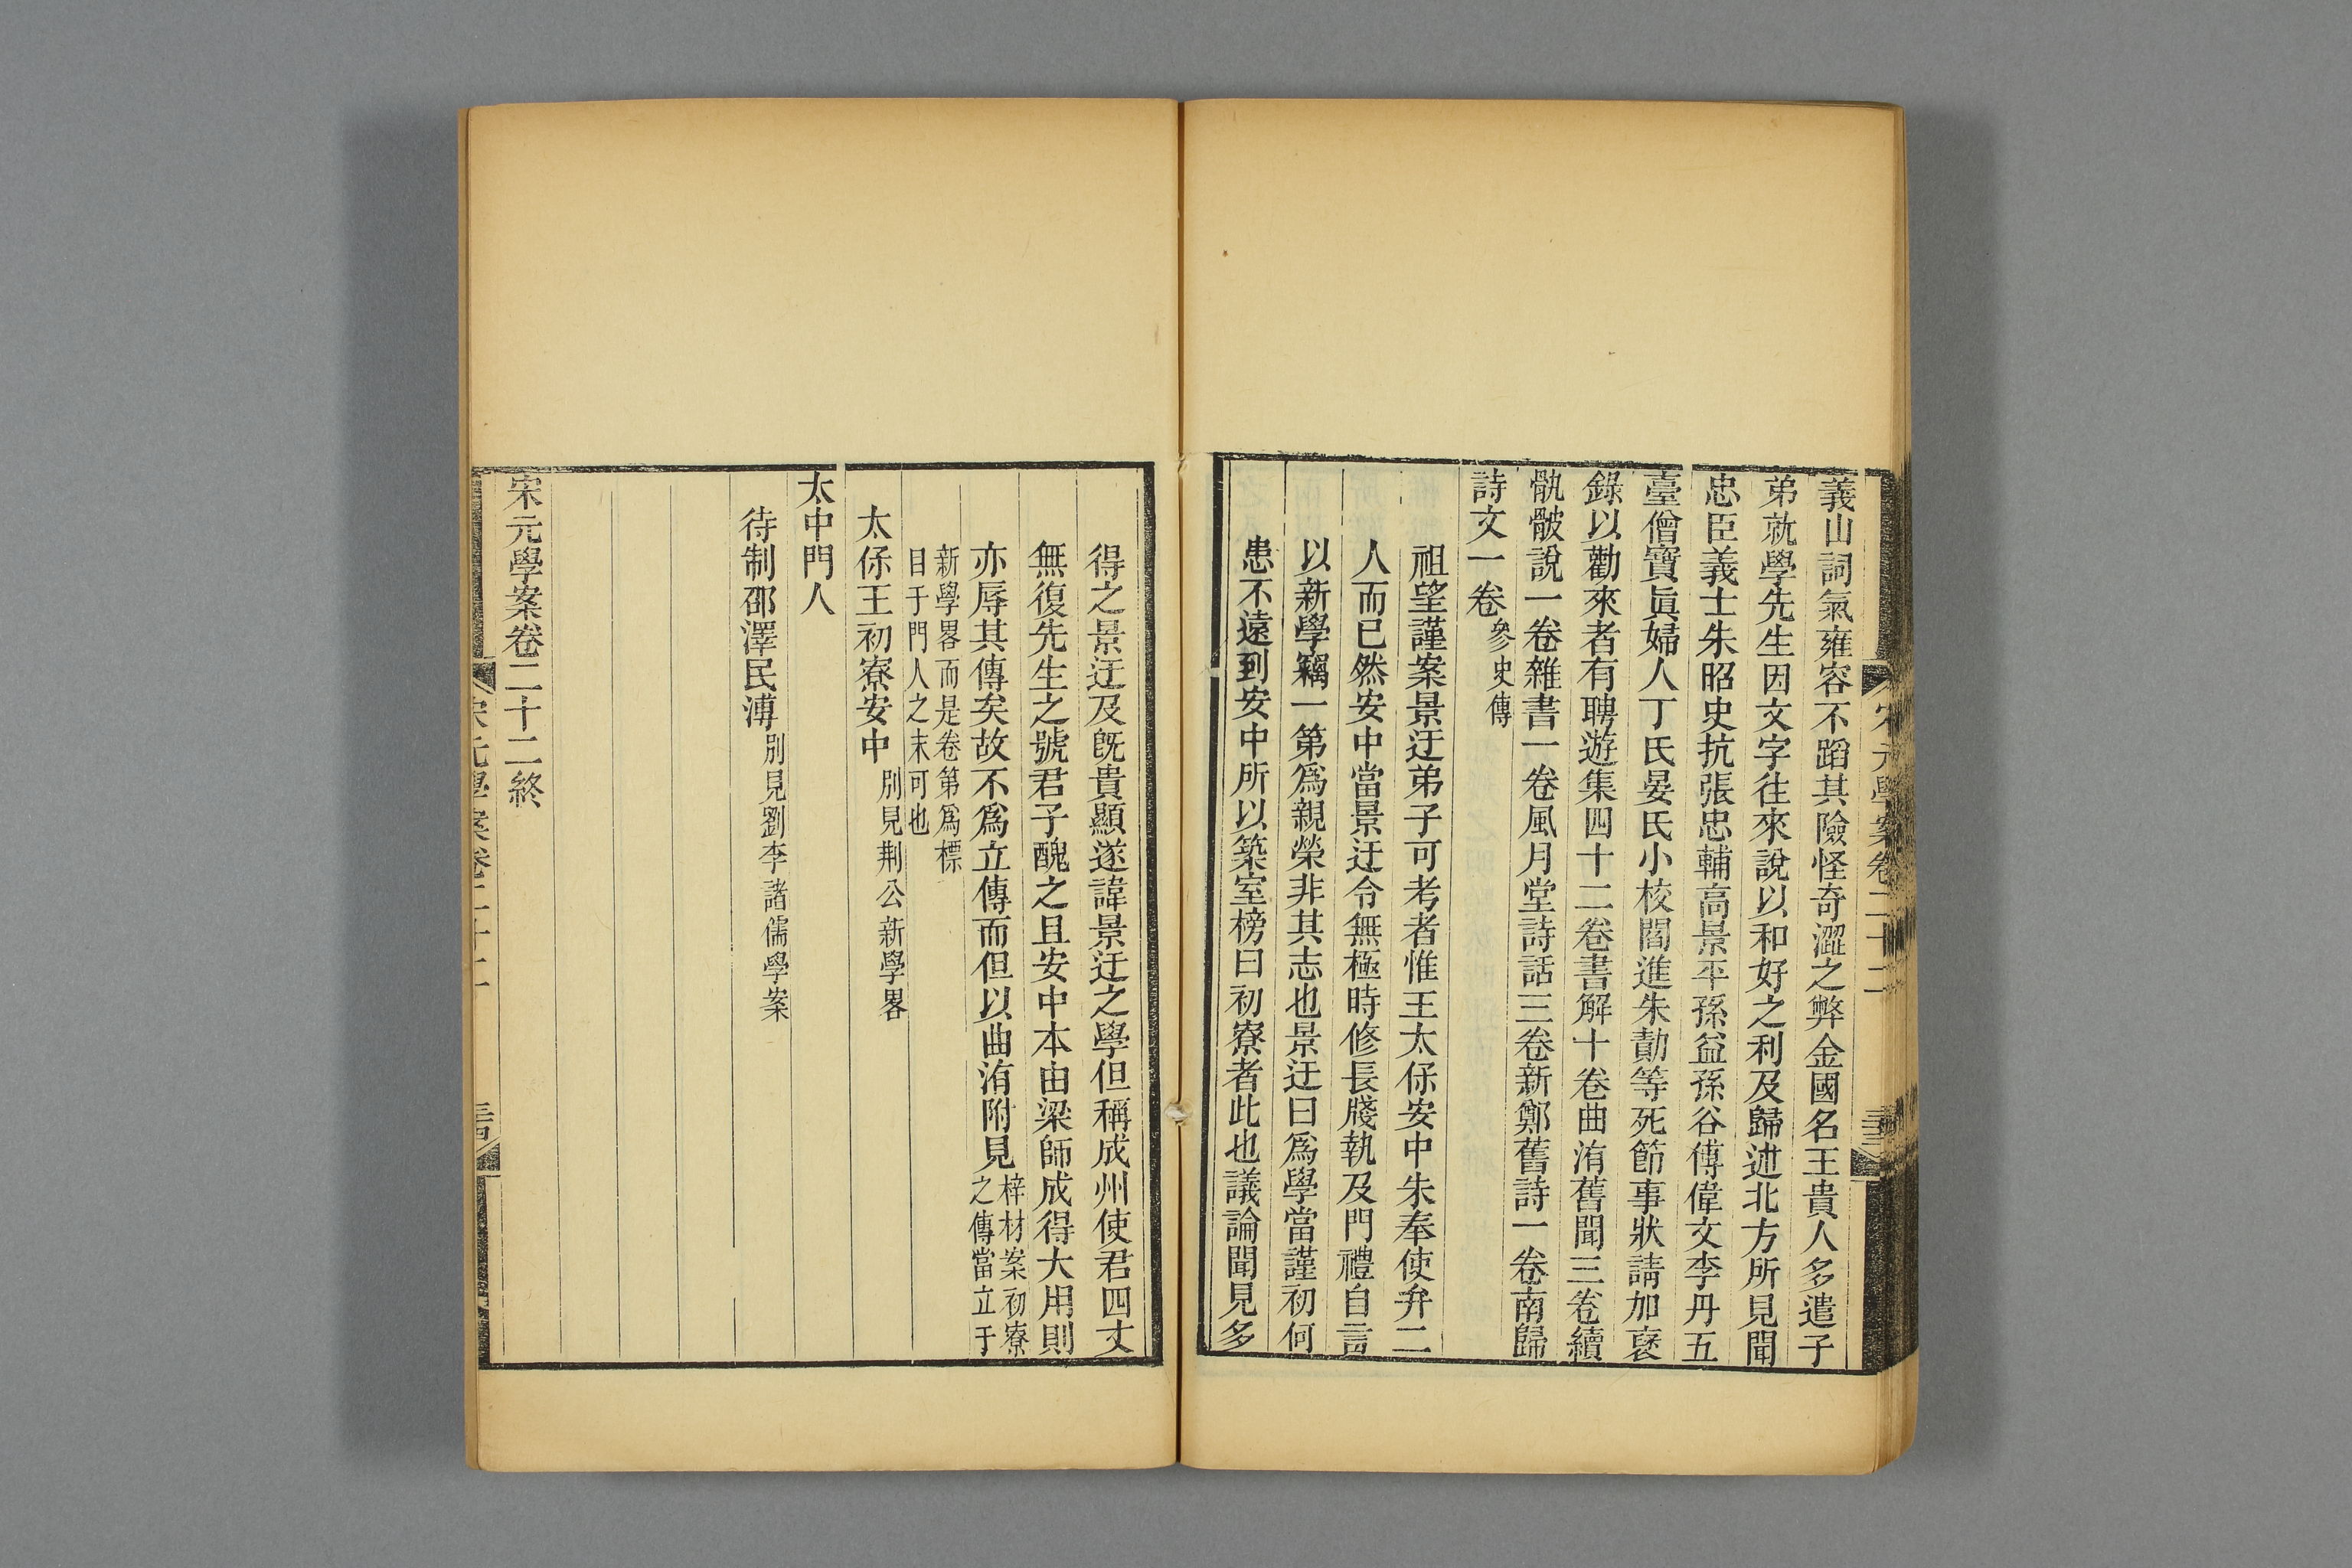 義山詞氣雍容不蹈其險怪奇澀之弊金國名王貴人多遣子
弟就學先生因文字往來說以和好之利及歸述北方所見聞
忠臣義士朱昭史抗張忠輔高景平孫益孫谷傅偉文李丹五
臺僧寶眞婦人丁氏晏氏小校閻進朱勣等死節事狀請加襃
錄以勸來者有聘遊集四十二卷書解十卷曲洧舊聞三卷續
骩骳說一卷雜書一卷風月堂詩話三卷新鄭舊詩一卷南歸
詩文一卷參史傳
祖望謹案景迂弟子可考者惟王太保安中朱奉使弁二
人而已然安中當景迂令無極時修長牋執及門禮自言
以新學竊一第爲親榮非其志也景迂曰爲學當謹初何
患不遠到安中所以築室榜曰初寮者此也議論聞見多
得之景迂及旣貴顯遂諱景迂之學但稱成州使君四丈
無復先生之號君子醜之且安中本由梁師成得大用則
亦辱其傳矣故不爲立傳而但以曲洧附見梓材案初寮
之傳當立于
新學畧而是卷第爲標
目于門人之末可也
太保王初寮安中別見荆公新學畧
太中門人
待制邵澤民溥別見劉李諸儒學案
宋元學案卷二十二終
宋元學案卷二十二